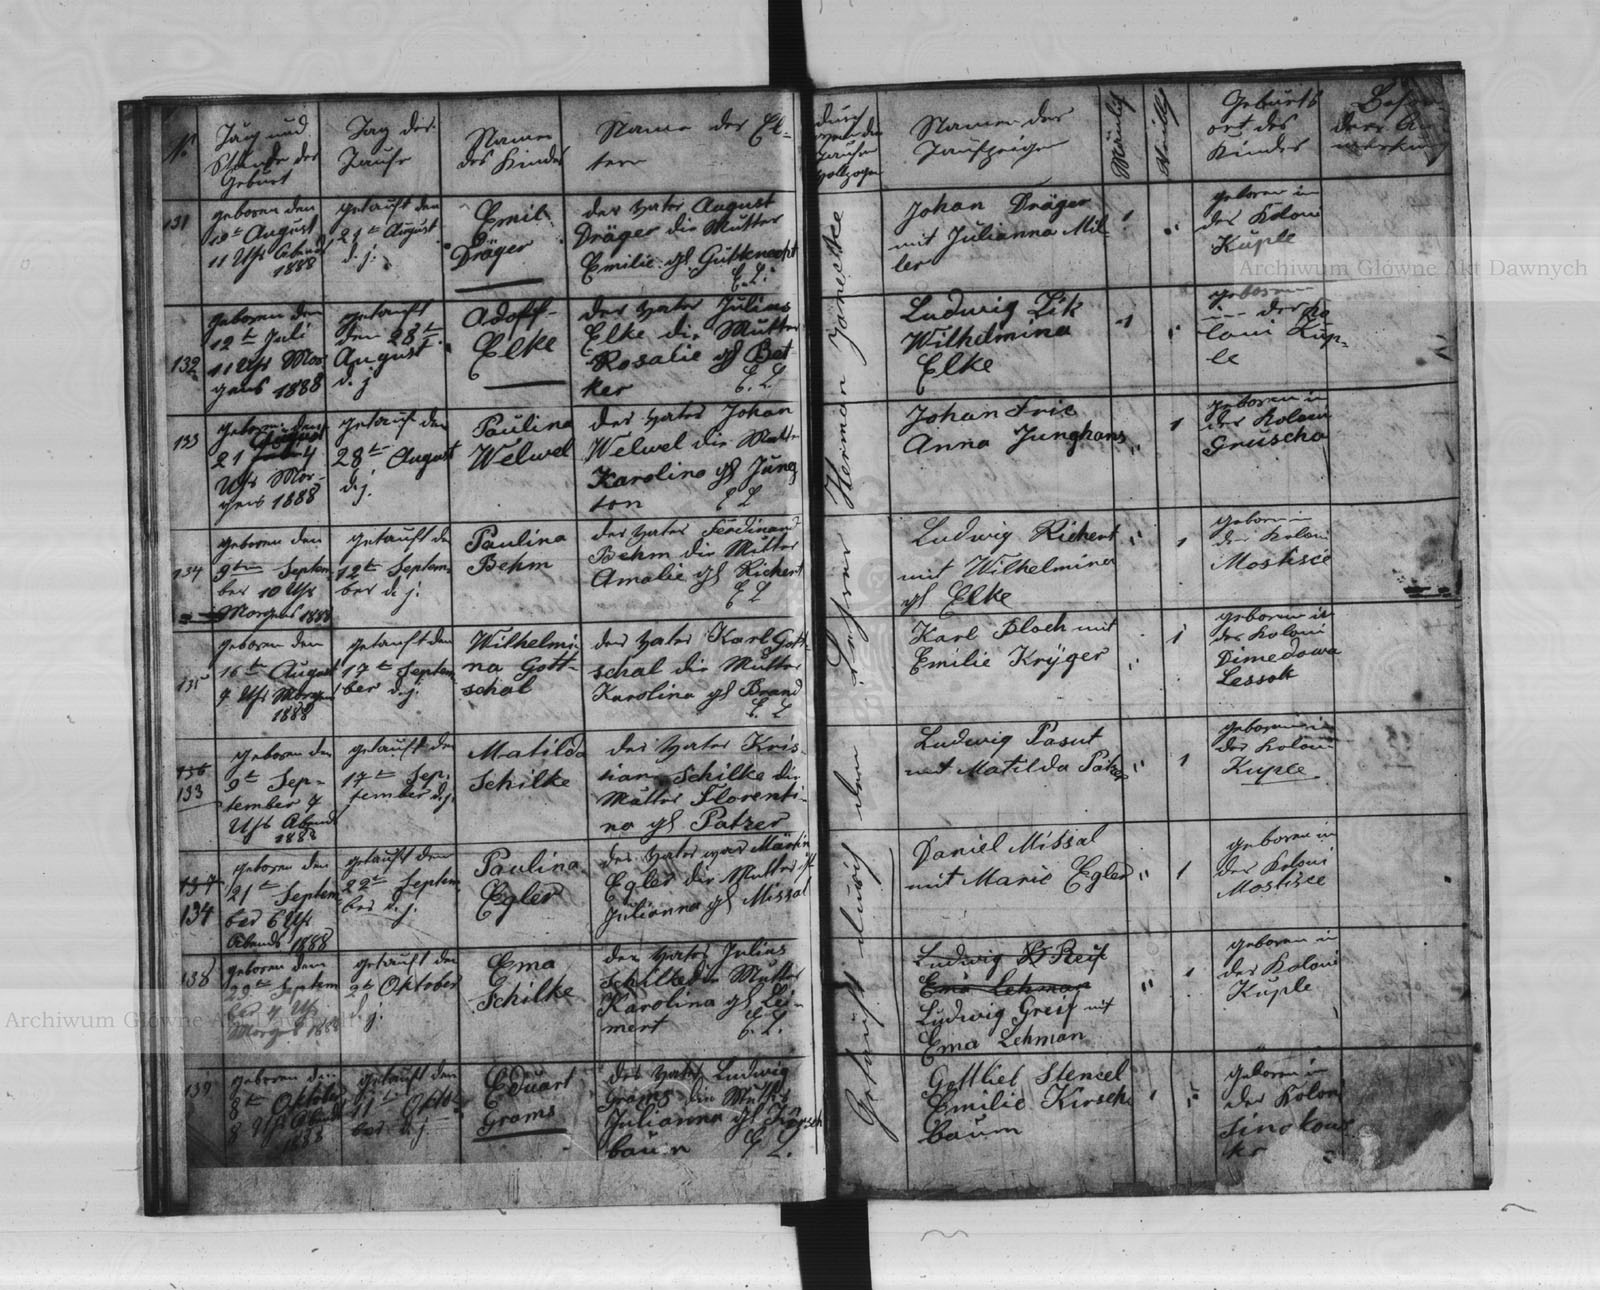 No
Tag und
Stunde der
Geburt
Tag der
Taufe
Namen
des Kindes
Name der El-
tern
durch
wen die
Taufe
vollzogen
Namen der
Taufzeugen
Mänlich
Weiblich
Geburts
ort des
Kindes
Beson
dere Be
merkung
131
geboren den
12te August
11 Uhr Abends
1888
getauft den
21te August
d. j.
Emil
Dräger
der Vater August
Dräger die Mutter
Emilie gb. Guttknecht
E. L.
Johan Dräger
mit Julianna Mil-
ler
1
geboren in
der Koloni
Kuple
132
geboren den
12te Juli
11 Uhr Mor
gens 1888
getauft
den 28te
August
d. j
Adolf
Elke
der Vater Julius
Elke die Mutter
Rosalie gb Bet
ker
E. L
Ludwig Zik
Wilhelmina
Elke
1
geboren
der Ko
loni Kup-
le
133
geboren den
August
21
Uhr Mor-
gens 1888
getauft den
28te August
d. j.
Paulina
Welwel
der Vater Johan
Welwel die Mutter
Karolina gb Jung
ton
E L
Johan Fric
Anna Junghans
1
geboren in
der Koloni
Gruscha
134
geboren den
9ten Septem
ber 10 Uhr
Morgens 1888
getauft den
12te Septem
ber d. j.
Paulina
Behm
der Vater Ferdinand
Behm die Mutter
Amalie gb Richert
E L
Ludwig Richert
mit Wilhelmina
gb Elke
1
geboren in
der Koloni
Mostisce
135
geboren den
16te August
4 Uhr Morgens
1888
getauft den
17te Septem
ber d. j.
Wilhelmi
na Gott-
schal
der Vater Karl Gott-
schal die Mutter
Karolina gb Brand
E. L
Karl Bloch mit
Emilie Krÿger
1
geboren in
der Koloni
Dimedowa
Lessok
136
133
geboren den
9te Sep-
tember 4
Uhr Abends
1888
getauft den
17te Sep-
tember d. j.
Matilda
Schilke
der Vater Kris-
tian Schilke die
Mutter Florenti-
na gb Patzer
Ludwig Pasut
mit Matilda Patzer
1
geboren in
der Koloni
Kuple
137
134
geboren den
21te Septem
ber 6 Uhr
Abends 1888
getauft den
22te Septem
ber d. j.
Paulina
Egler
der Vater war Märtin
Egler die Mutter ist
Julianna gb Missal
Daniel Missal
mit Marie Egler
1
geboren in
der Koloni
Mostisce
138
geboren den
29te Septem
ber 4 Uhr
Morgens 1888
getauft den
2te Oktober
d. j.
Ema
Schilke
der Vater Julius
Schilke die Mutter
Karolina gb Lei-
mert
E. L.
Ludwig Reif
Ema Lehman
Ludwig Greif mit
Ema Lehman
1
geboren in
der Koloni
Kuple
139
geboren den
8te Oktober
8 Uhr Abends
1888
getauft den
11te Okto
ber d. j.
Eduart
Grams
der Vater Ludwig
Grams die Mutter
Julianna gb Kirsch
baum
E L.
Gottlieb Stencel
Emilie Kirsch
baum
1
geboren in
der Koloni
Getauft durch den Lehrer Herman Janettke
Archiwum Główne Akt Dawnych
Archiwum Główne Akt Dawnych